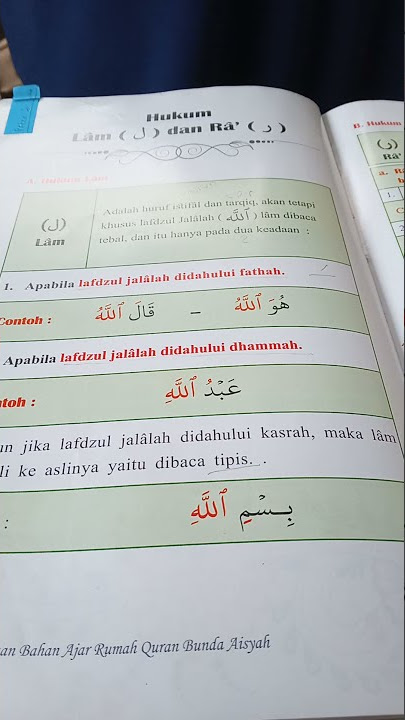 Hukum
Lâm ( ل ) dan Râ' ( ر )
A. Hukum Lâm
(ل)
Lâm
Adalah huruf istifâl dan tarqiq, akan tetapi
khusus lafdzul jalâlah ( ٱللَّه ) lâm dibaca
tebal, dan itu hanya pada dua keadaan :
1. Apabila lafdzul jalâlah didahului fathah.
Contoh : هُوَ ٱللَّهُ – قَالَ ٱللَّهُ
Apabila lafdzul jalâlah didahului dhammah.
toh : عَبْدُ ٱللَّهِ
un jika lafdzul jalâlah didahului kasrah, maka lâm
li ke aslinya yaitu dibaca tipis. .
: بِسْمِ ٱللَّهِ
an Bahan Ajar Rumah Quran Bunda Aisyah
B. Hukum
(ر)
Râ'
a.
1.
2